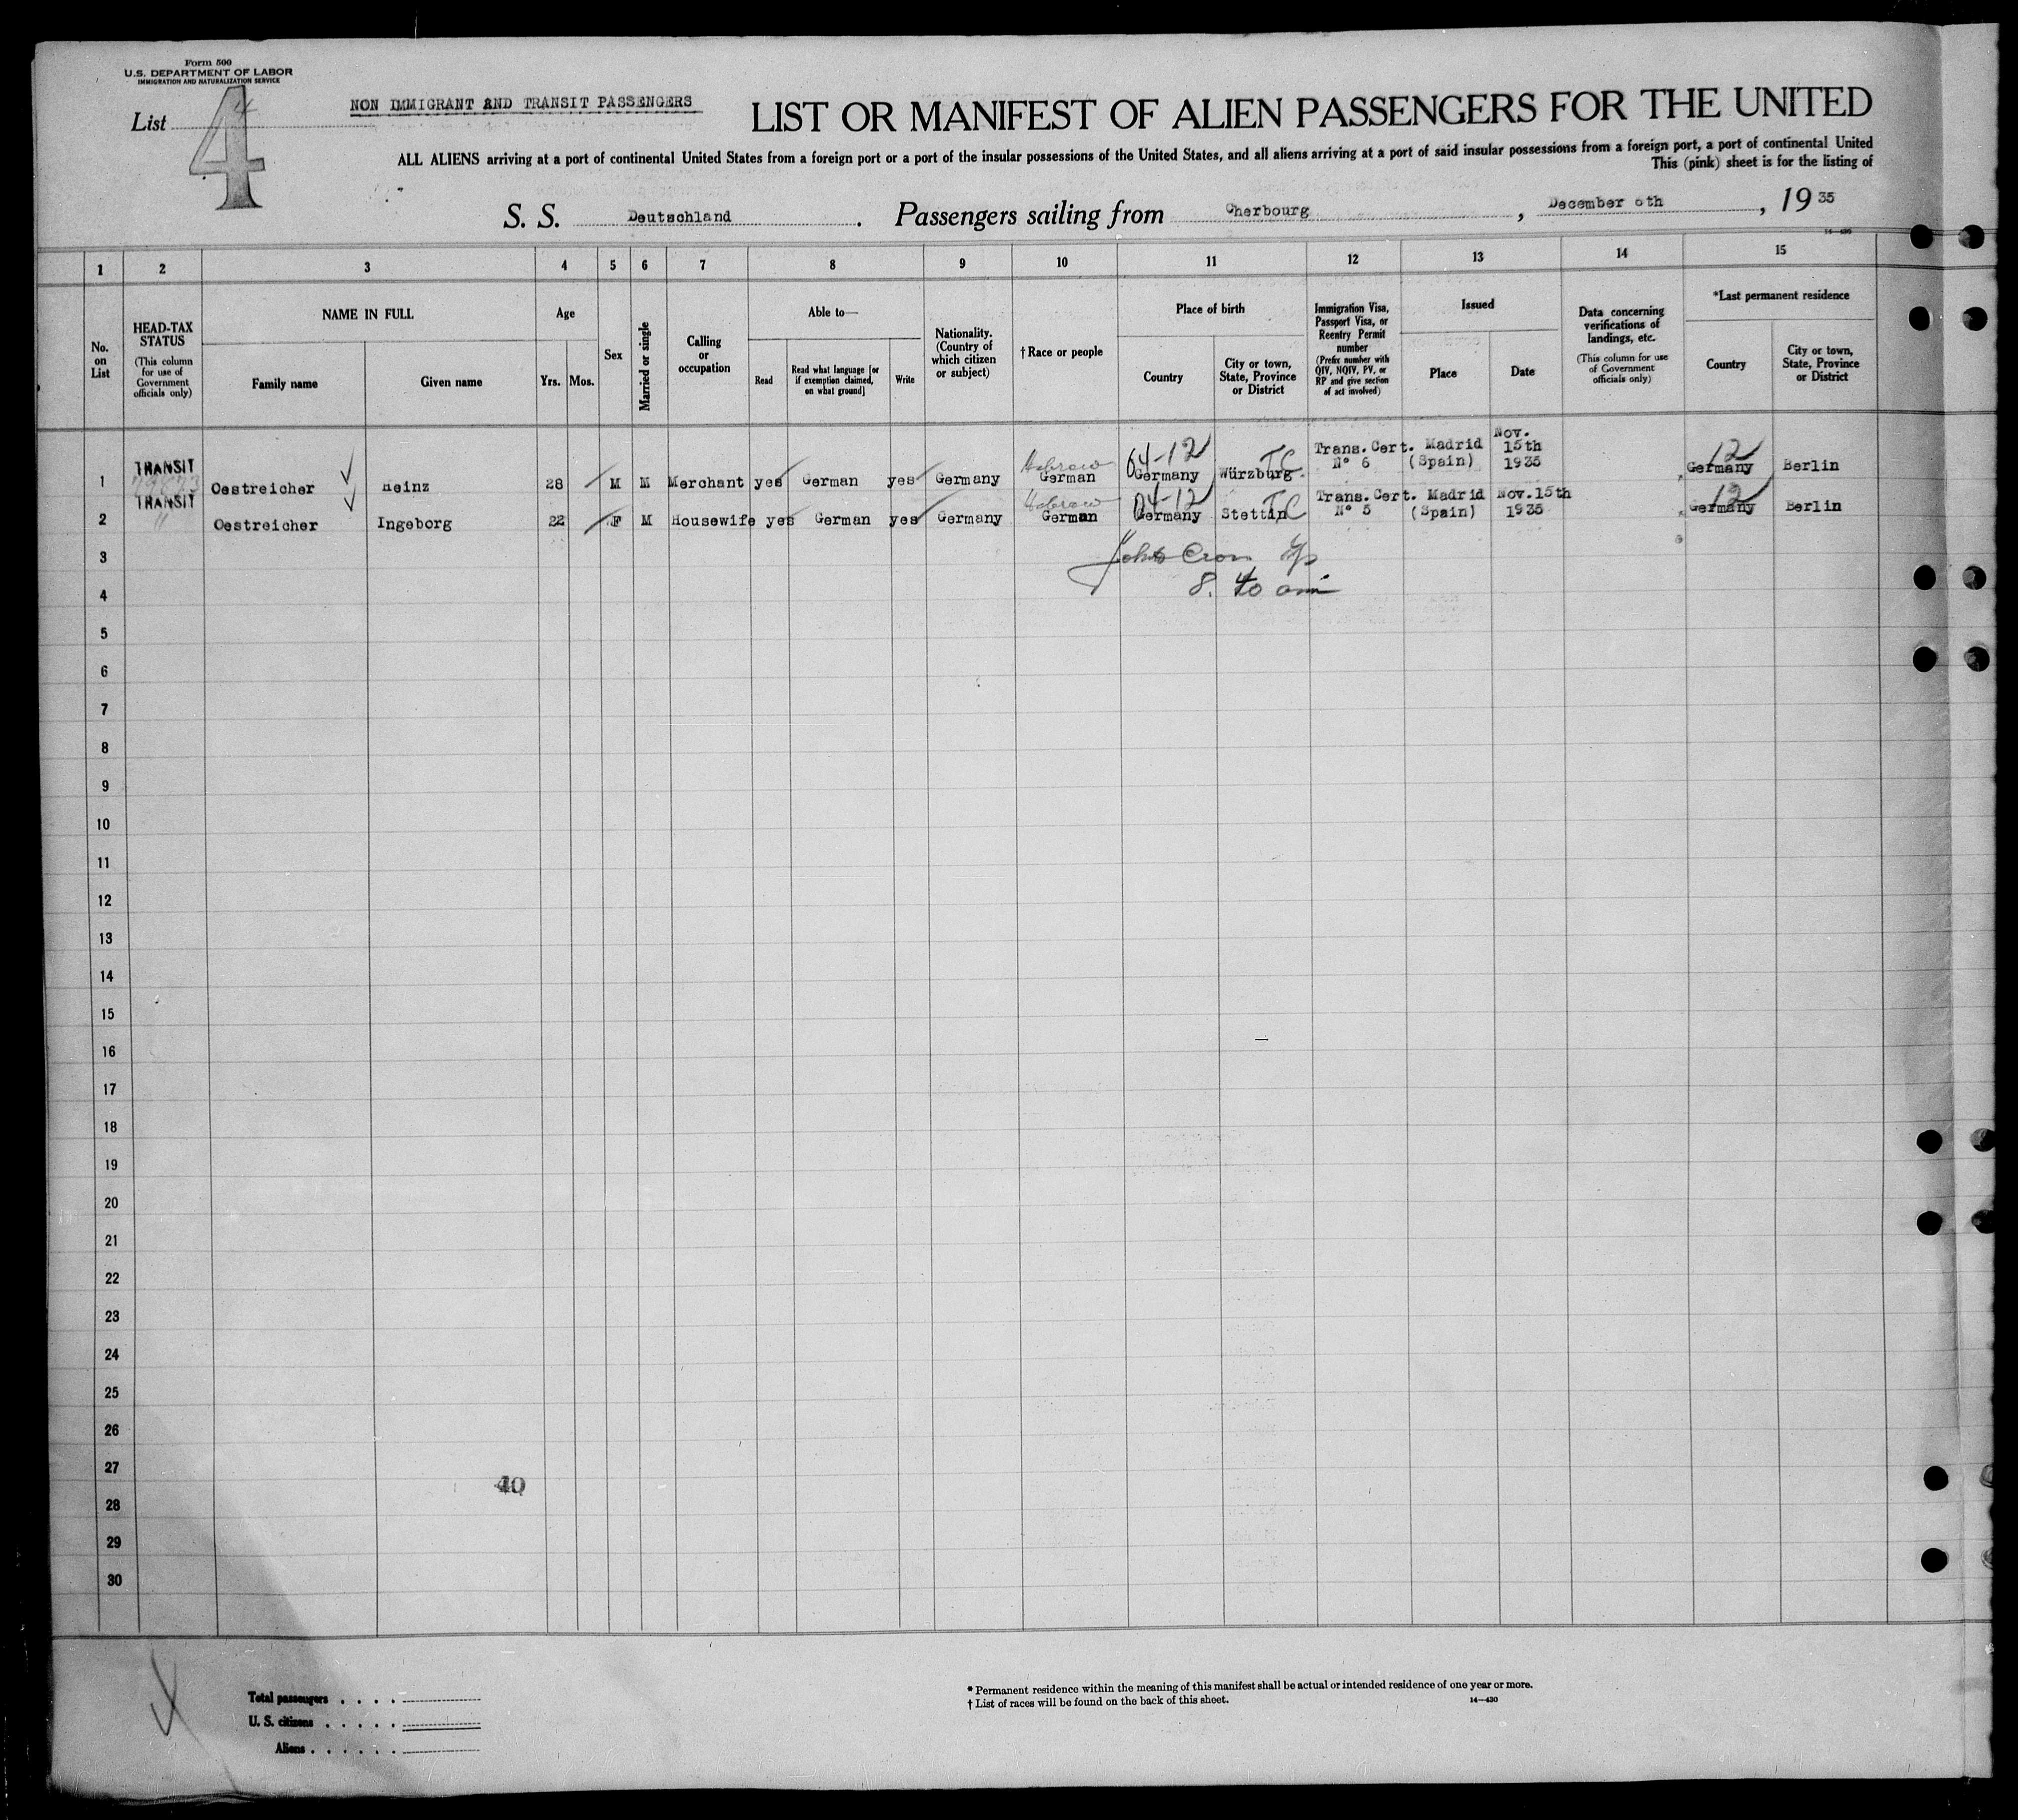 Form 500
U.S. DEPARTMENT OF LABOR
IMMIGRATION AND NATURALIZATION SERVICE
List 4
4
NON IMMIGRANT AND TRANSIT PASSENGERS
LIST OR MANIFEST OF ALIEN PASSENGERS FOR THE UNITED
ALL ALIENS arriving at a port of continental United States from a foreign port or a port of the insular possessions of the United States, and all aliens arriving at a port of said insular possessions from a foreign port, a port of continental United
This (pink) sheet is for the listing of
S. S. Deutschland. Passengers sailing from Cherbourg, December 6th, 1935
14-430
1 2 3 4 5 6 7 8 9 10 11 12 13 14 15
No. on List
HEAD-TAX STATUS
(This column for use of Government officials only)
NAME IN FULL
Family name
Given name
Age
Yrs. Mos.
Sex
Married or single
Calling or occupation
Able to—
Read
Read what language [or if exemption claimed, on what ground]
Write
Nationality. (Country of which citizen or subject)
†Race or people
Place of birth
Country
City or town, State, Province or District
Immigration Visa, Passport Visa, or Reentry Permit number
(Prefix number with QIV, NQIV, PV, or RP and give section of act involved)
Issued
Place
Date
Data concerning verifications of landings, etc.
(This column for use of Government officials only)
*Last permanent residence
Country
City or town, State, Province or District
1 TRANSIT Oestreicher Heinz 28 M M Merchant yes German yes Germany Hebrew German 04-12 Germany Würzburg TC Trans. Cert. N° 6 Madrid (Spain) Nov. 15th 1935 12 Germany Berlin
2 TRANSIT " Oestreicher Ingeborg 22 F M Housewife yes German yes Germany Hebrew German 04-12 Germany Stettin TC Trans. Cert. N° 5 Madrid (Spain) Nov. 15th 1935 12 Germany Berlin
3
8.40 am
4
5
6
7
8
9
10
11
12
13
14
15
16
17
18
19
20
21
22
23
24
25
26
27
40
28
29
30
Total passengers . . . .
U. S. citizens . . . . .
Aliens . . . . . .
* Permanent residence within the meaning of this manifest shall be actual or intended residence of one year or more.
† List of races will be found on the back of this sheet.
14—430